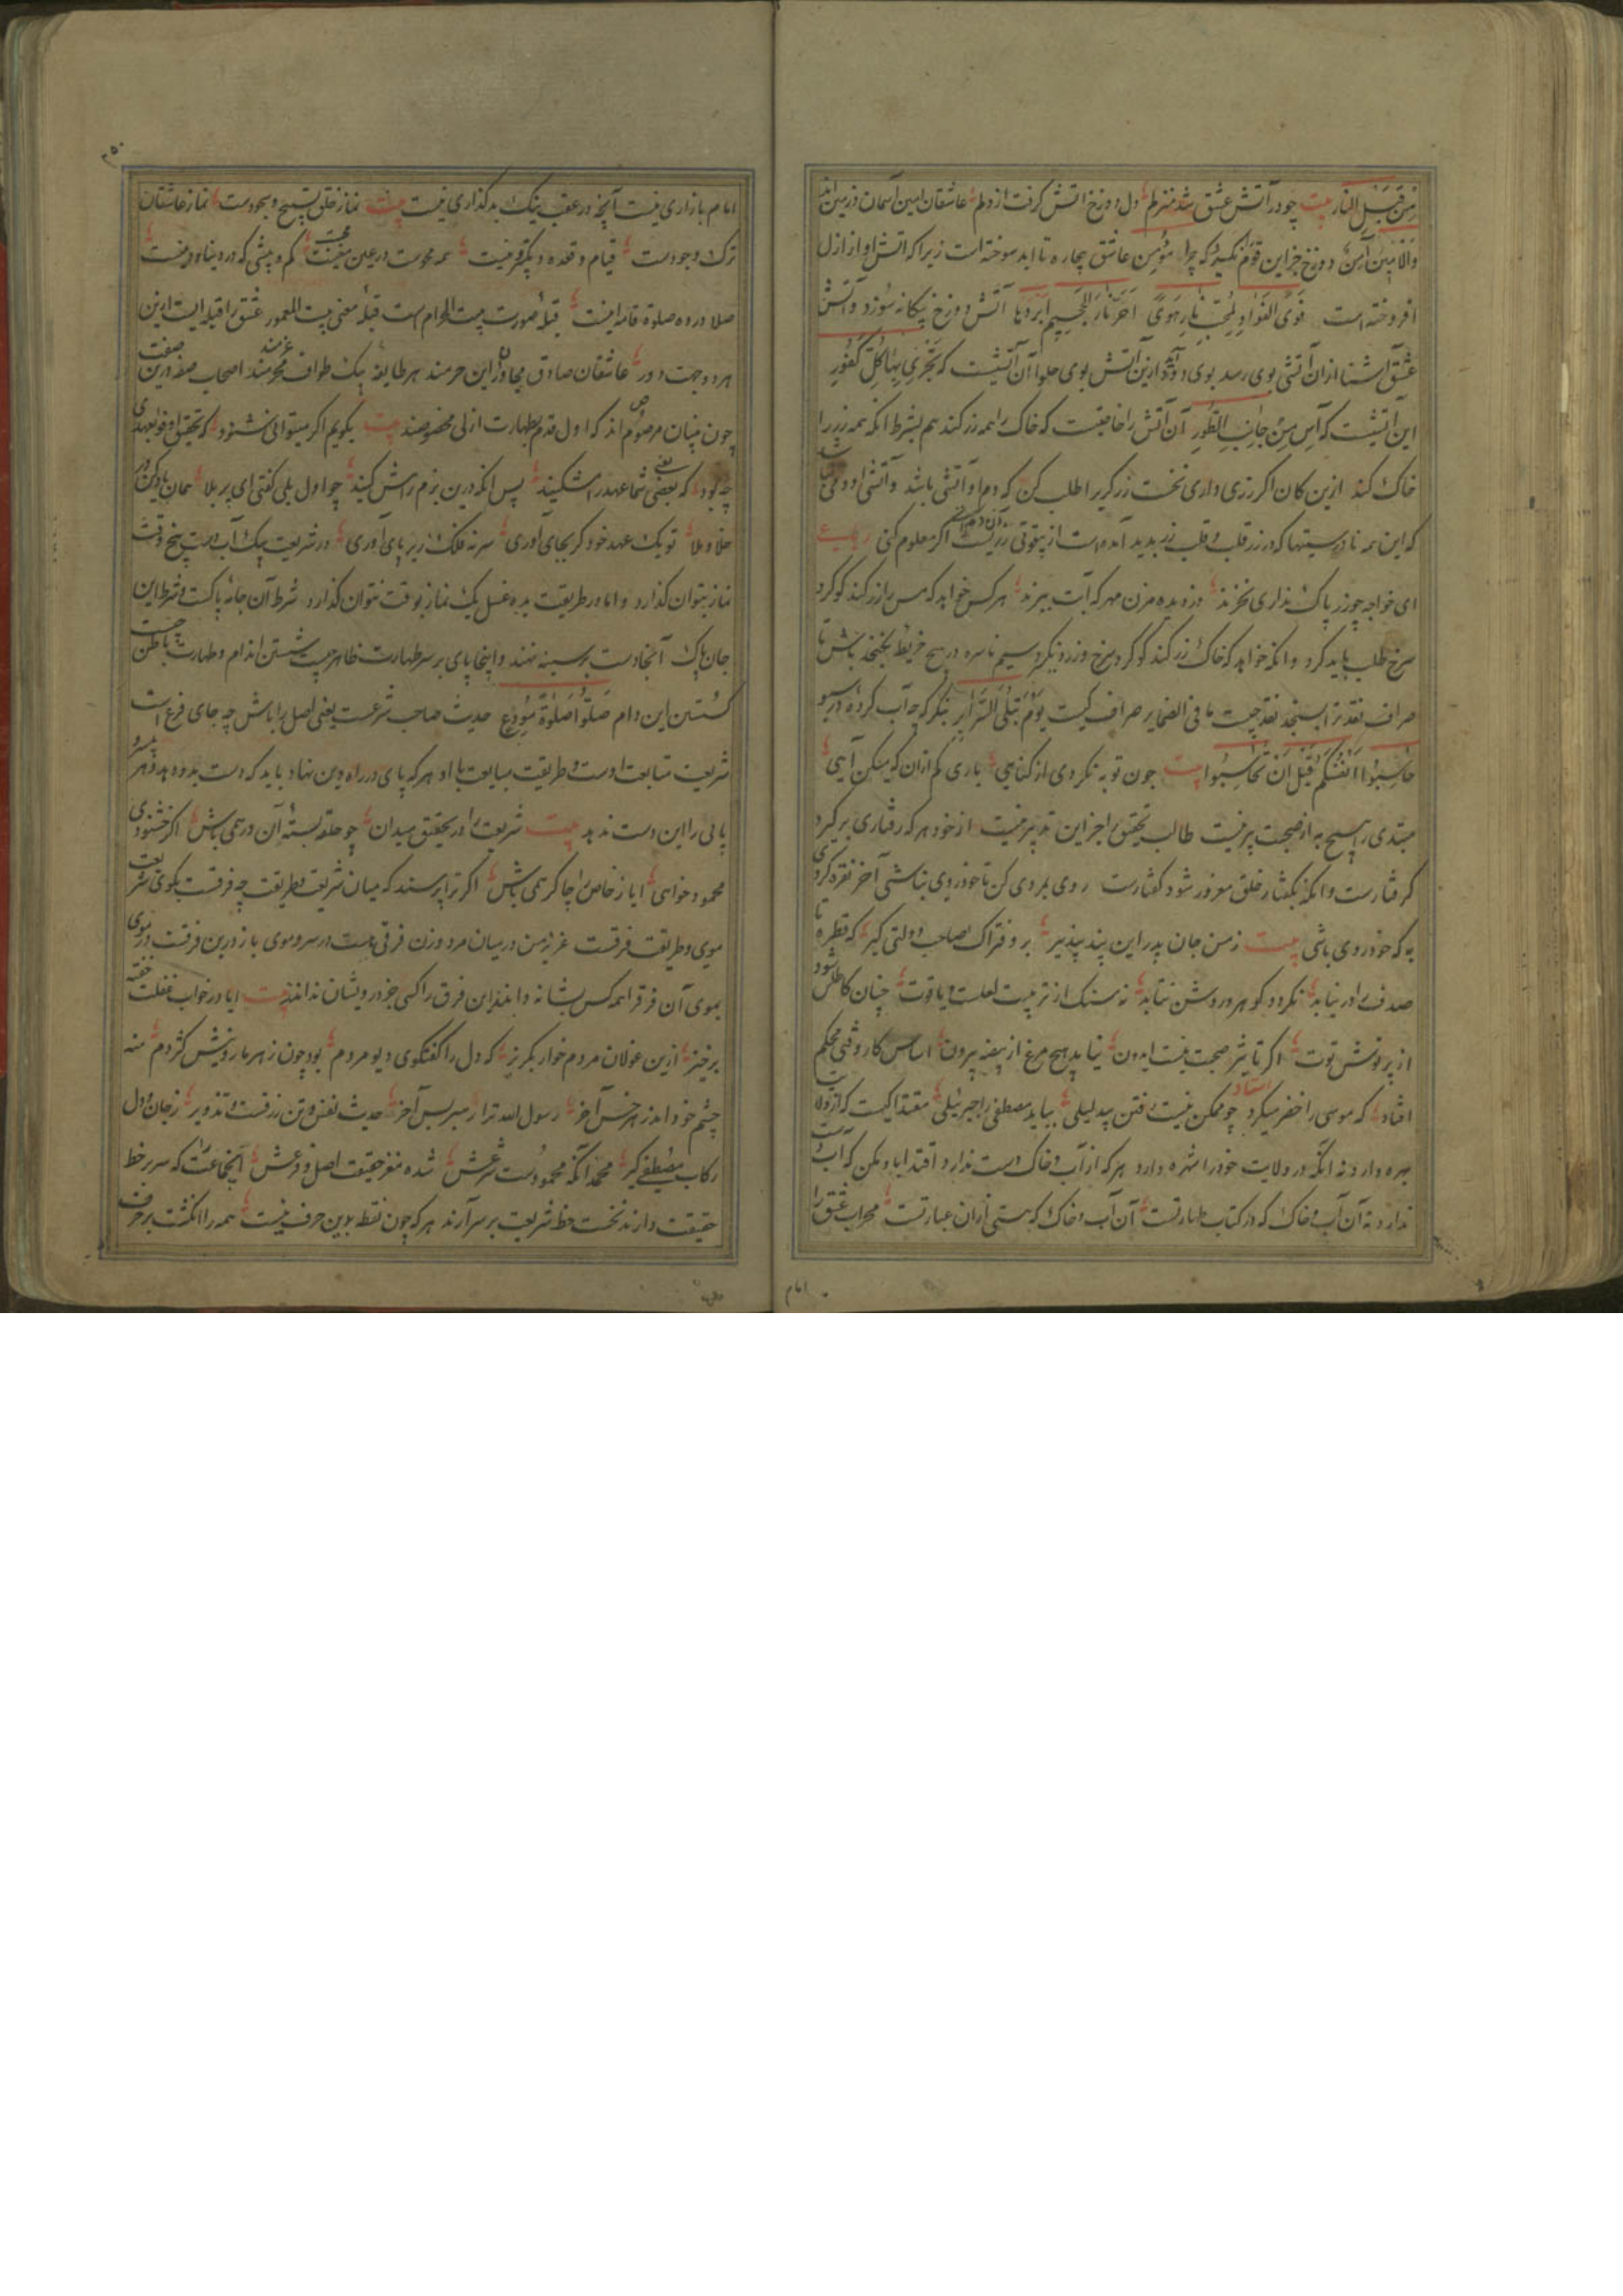 مِن قَبلِ النار بیت چو در آتش عشق شد منزلم دل دوزخ آتش گرفت از دلم عاشقان امین آسمان و زمین اند
والآمنین آمِن دوزخ جز این قوم نکیرد که چرا مؤمن عاشق بیچاره تا ابد سوخته است زیرا که آتش او از ازل
افروخته است فَوَی الفواد لِمُحِبٍّ نارِ هَویً اَحَرُّ نار الجَحیمِ اَبرَدُها آتش دوزخ بیکانه سوزد و آتش
عشق آشنا از آن آتش بوی رسد بوی دود آید ازین آتش بوی حلوا آن آتشیست که تَجزی بها کُلَّ کَفُورٍ
این آتشیست که آنس مِن جانب الطُّورِ آن آتش را خاصیت که خاک را همه زر کند هم بشرط آنکه همه زر را
خاک کند ازین کان اکر زری داری نخست زرکر را طلب کن که دم او آتشی باشد و آتشی او دمی
که این همه نادرستیها که در زر قلب و قلب زر بدید آمده است از بیقوتی زرکریست اکر معلوم کنی رباعی
ای خواجه چو زر پاک نداری نخرند دزدیده مزن مهر که آبت ببرند هر کس خواهد که مس را زر کند کوکرد
سرخ طلب باید کرد و آنکه خواهد که خاک زر کند کوکرد سرخ و زرد نکرد سیم ناسره در هیچ خریطه بخنجد باش تا
صراف نقد ترا بسنجد نقد چیست ما فی الضمایر صراف کیست یَومَ تُبلَی السَّرایر بنکر که چه آب کرده در سبو
حاسِبُوا اَنفُسَکُم قَبلَ اَن تُحاسَبُوا بیت چون توبه نکردی از کناهی باری کم از آن که میکن آهی
مبتدی را هیچ به از صحبت پیر نیست طالب تحقیق را جز این تدبیر نیست از خود هر که رفتاری برکیرد
کرفتارست و آنکه بکفتار خلق مغرور شود کفتارست روی بروی کن تا خودروی نباشی آخر نقره کردی
به که خودروی باشی بیت ز من جان پدر این پند بپذیر برو فتراک صاحب دولتی کیر که قطره تا
صدف را در نیابد نکردد کوهر و روشن نتابد نه سنک از تربیت لعلست و یاقوت چنان کاطلس شود
از پرورش توت اکر تاثیر صحبت نیست ایدون نیاید هیچ مرغ از بیضه بیرون اساس کار وقتی محکم
افتاد که موسی را خضر میکرد استاد چو ممکن نیست رفتن بیدلیلی بباید مصطفی را جبرئیلی مقتدا کیست که از ولایت
بهره دارد نه آنکه در ولایت خود را شهره دارد هر که از آب و خاک دست ندارد اقتدا با او مکن که آب دست
ندارد نه آن آب و خاک که در کتاب طهارتست آن آب و خاک که هستی از آن عبارتست محراب عشق را
امام
امام بازاری نیست آنچه در عقب نیک است بد کذاری نیست بیت نماز خلق تسبیح و سجودست نماز عاشقان
ترک وجودست قیام و قعده و تکبیر نیست همه محوست در عین معیت کم و بیشی که در دنیا و دینست
صلا در ده صلوة قامه اینست قبله صورت بیت الحرام است قبله معنی بیت المعمور عشق را قبله ایست ازین
هر دو جهت دور عاشقان صادق مجاوران این حرمند هر طایفه بیک طواف محرمند اصحاب صفه درین
چون بنیان مرصوص اند که اول قدم بطهارت ازلی مخصوصند بیت بکویم اکر میتوانی شنود که تحقیق اوفوا بعهدی
چه بود که بعضی شما عهدر اشکنید پس آنکه درین بزم رامش کنید چو اول بلی کفتی ای پر بلا همان باد کن در
خلا و ملا تو یک عهد خود کر بجای آوری سر نه فلک زیر پای آوری در شریعت بیک آب دست پنج وقت
نماز بتوان کذارد و اما در طریقت بده غسل یک نماز بوقت نتوان کذارد شرط آن جامه پاکست و شرط این
جان پاک آنجا دست بر سینه نهند و اینجا پای بر سر طهارت ظاهر چیست شستن اندام و طهارت باطن چیست
کسستن این دام صَلُّوا صَلوةَ مُوَدِّعٍ حدیث صاحب شرعست یعنی اصل را باش چه جای فرع است
شریعت متابعت اوست و طریقت مبایعت با او هر که پای در راه دین نهاد باید که دست بدو دهد و هر
پائی را این دست ندهد بیت شریعت را در تحقیق میدان چو حلقه بسته آن در همی باش اکر خشنودی
محمود خواهی ایاز خاص را چاکر همی باش اکر ترا پرسند که میان شریعت و طریقت چه فرقست بکوی شریعت
موی و طریقت فرقست عزیز من در میان مرد و زن فرقی هست در سر و موی باز درین فرقست در موی
بموی آن فرق را همه کس بشانه دانند این فرق را کسی جز درویشان ندانند بیت ایا در خواب غفلت خفته
برخیز ازین غولان مردم خوار بکریز که دل را کفتکوی دیو مردم بود چون زهر مار و نیش کژدم منه
چشم خرد اندر هر خس آخر رسول الله ترا رهبر بس آخر حدیث نفس و تن زرقست و تزویر ز جان و دل
رکاب مصطفی کیر محمد آنکه محمودست شرعش شده مغز حقیقت اصل و فرعش آنجماعت که سر بر خط
حقیقت دارند نخست خط شریعت بر سر آرند هر که چون نقطه بدین حرف نیست همه را انکشت بر حرف